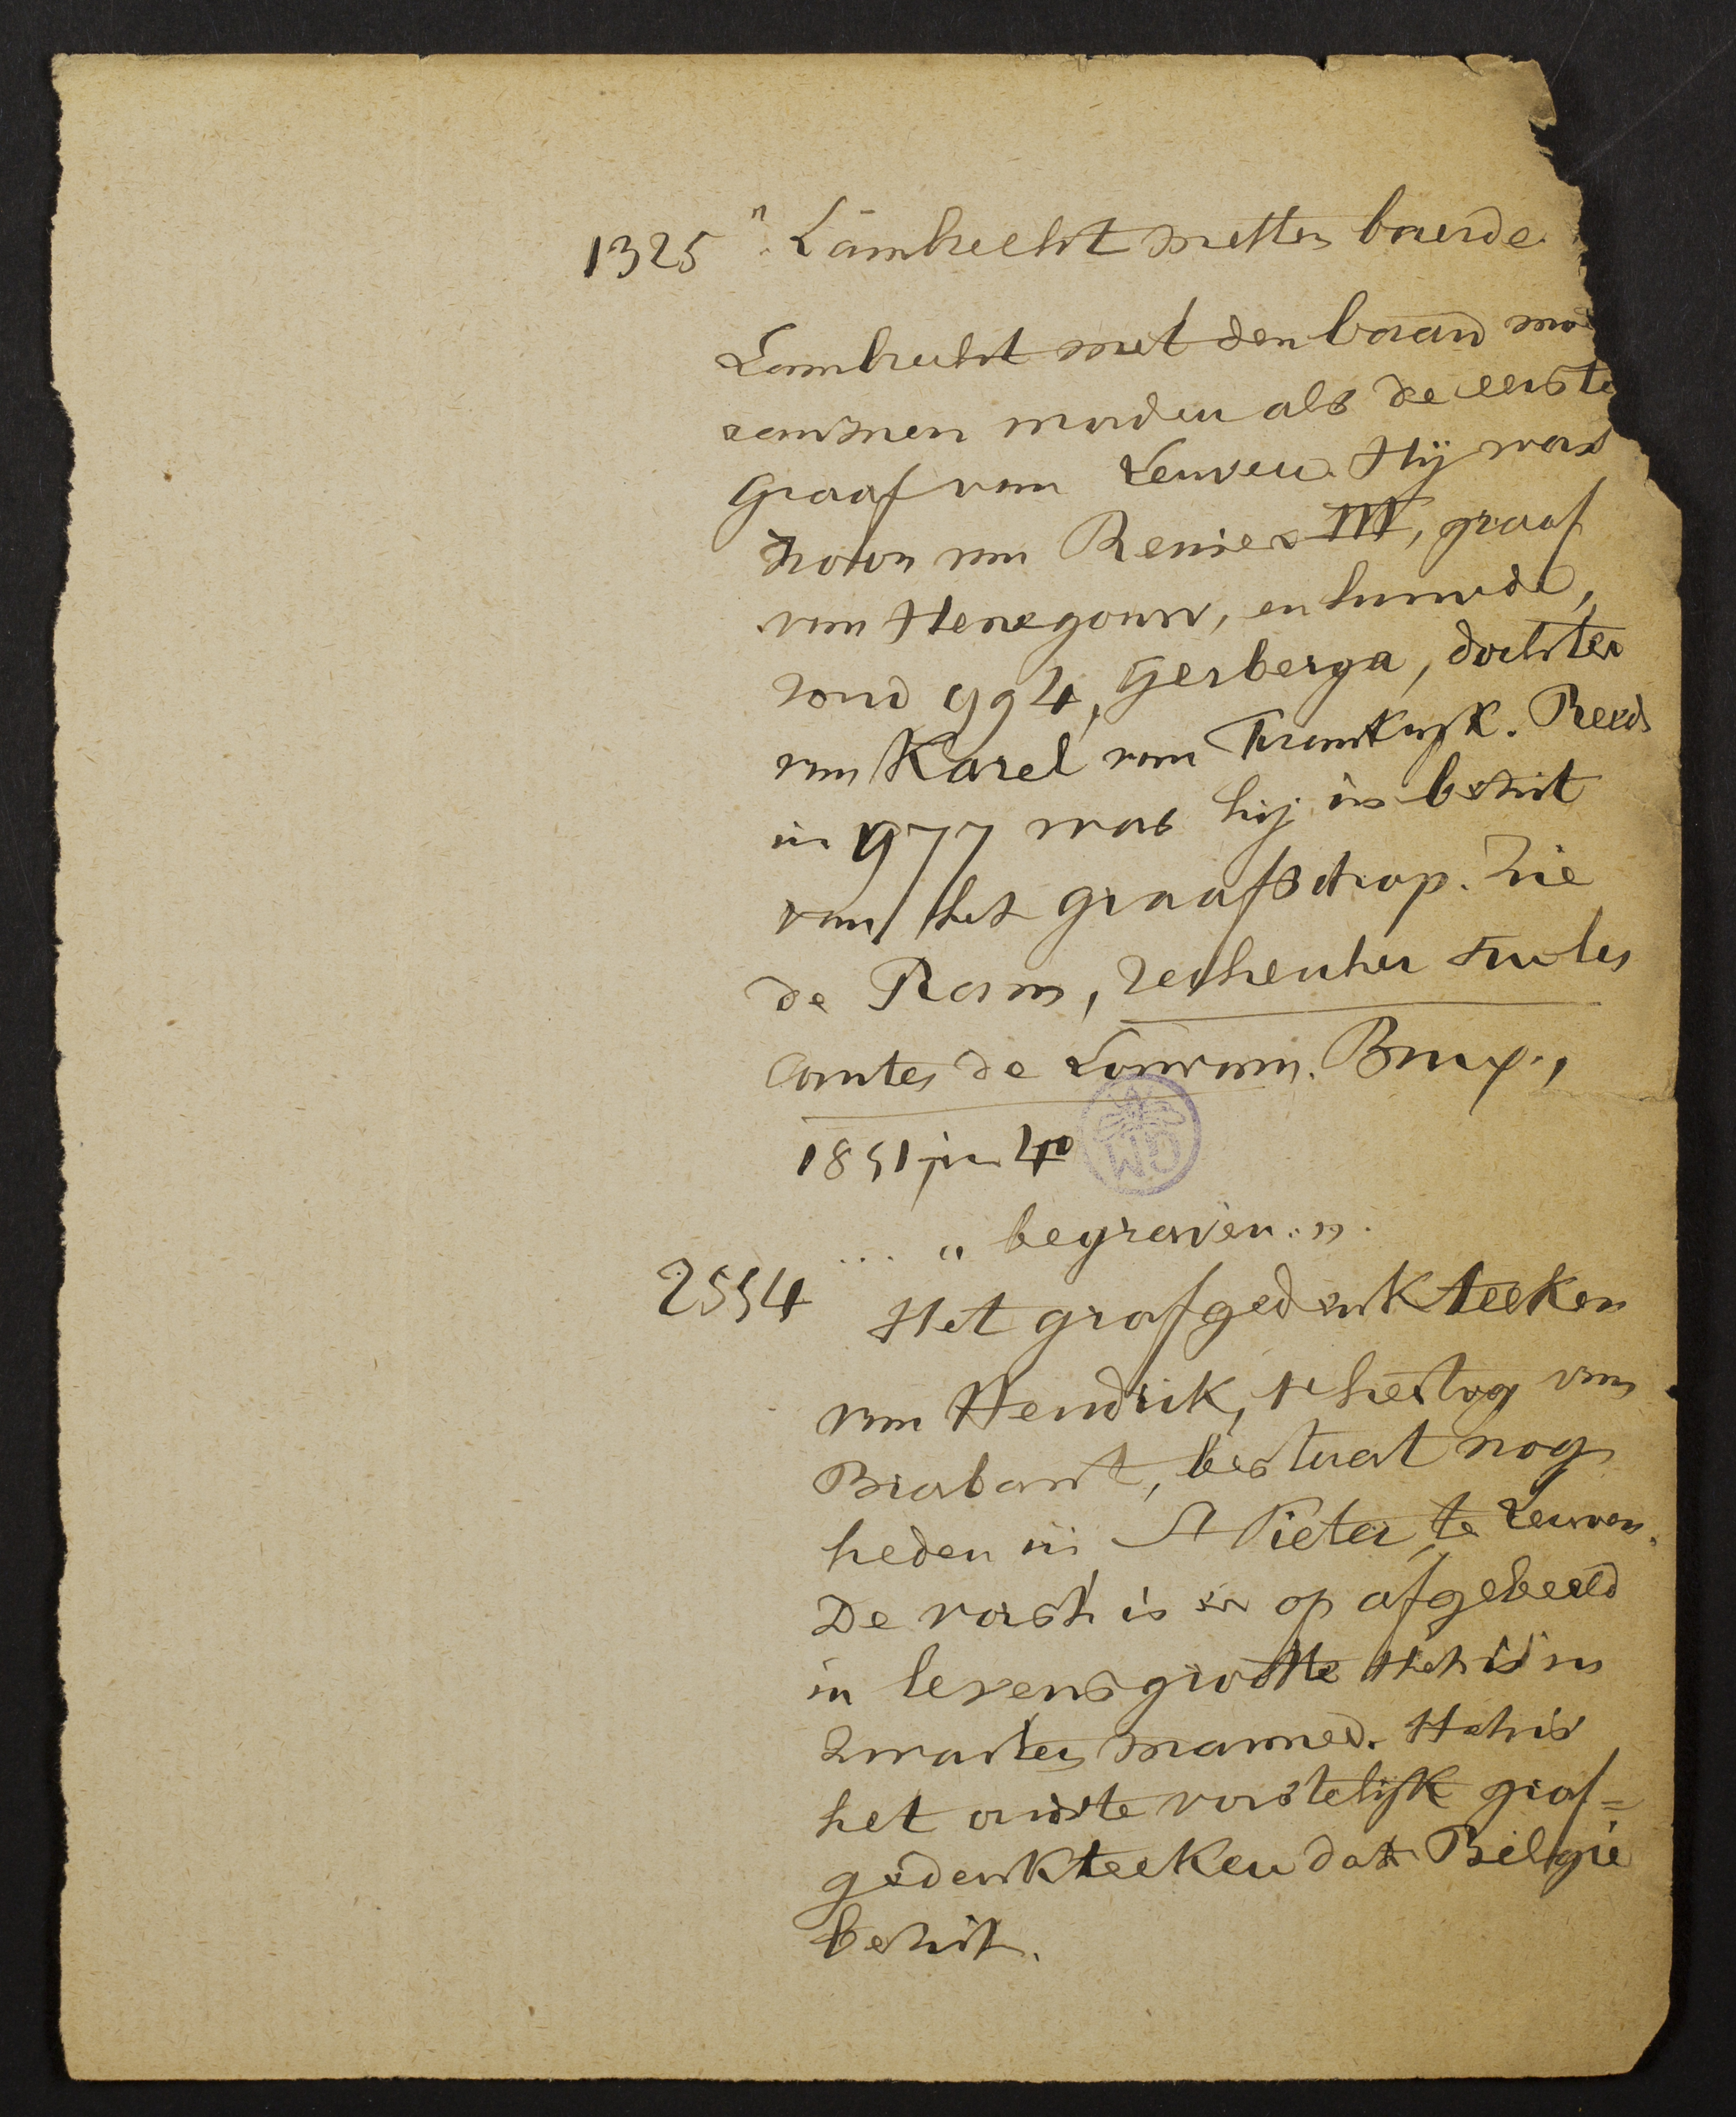 1325 " Lambrecht metten baerde
Lambrecht met den baard
aanzien worden als de eerste
Graaf van Leuven. Hij was
zoon van Reinier III, graaf
van Henegouw, en huwde,
rond 994, Gerberga, dochter
van Karel van Frankrijk. Reeds
in 977 was hij in bezit
van het graafschap. Zie
de Ram, Recherches sur les
Comtes de Louvain. Brux.,
1851, in 4o
... " begraven. "
2554 Het grafgedenkteeken
van Hendrik, 1e hertog van
Brabant, bestaat nog
heden in St Pieter te Leuven.
De vorst is er op afgebeeld
in levensgrootte Het is in
zwarten marmer. Het is
het oudste vorstelijk graf=
gedenkteeken dat België
bezit.